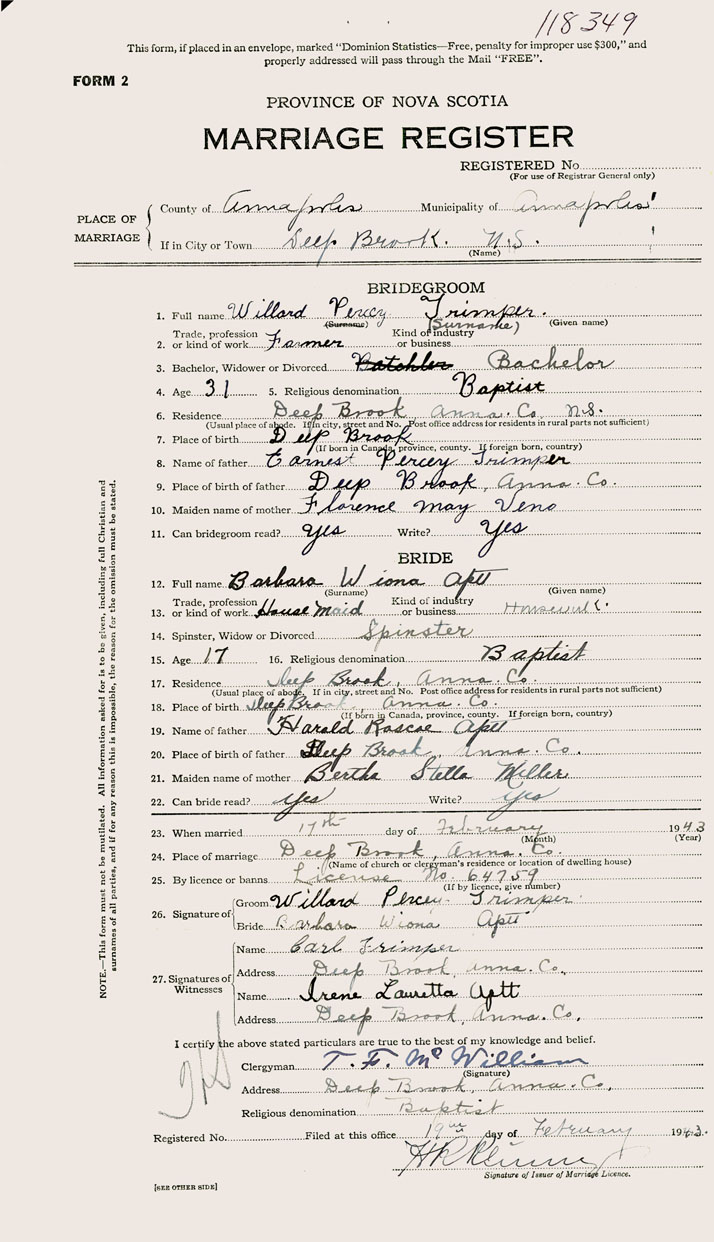 118349
This form, if placed in an envelope, marked "Dominion Statistics—Free, penalty for improper use $300," and
properly addressed will pass through the Mail "FREE".
FORM 2
PROVINCE OF NOVA SCOTIA
MARRIAGE REGISTER
REGISTERED No.
(For use of Registrar General only)
PLACE OF MARRIAGE
County of Annapolis Municipality of Annapolis
If in City or Town Deep Brook. N.S.
(Name)
BRIDEGROOM
1. Full name Willard Percy Trimper.
(Surname) (Surname) (Given name)
2. Trade, profession or kind of work Farmer Kind of industry or business
3. Bachelor, Widower or Divorced Batchler Bachelor
4. Age 31 5. Religious denomination Baptist
6. Residence Deep Brook, Anna. Co, N.S.
(Usual place of abode. If in city, street and No. Post office address for residents in rural parts not sufficient)
7. Place of birth Deep Brook
(If born in Canada, province, county. If foreign born, country)
8. Name of father Earnest Percey Trimper
9. Place of birth of father Deep Brook, Anna. Co.
10. Maiden name of mother Florence may Veno
11. Can bridegroom read? yes Write? Yes
BRIDE
12. Full name Barbara Wiona Aptt
(Surname) (Given name)
13. Trade, profession or kind of work House maid Kind of industry or business Housework.
14. Spinster, Widow or Divorced Spinster
15. Age 17 16. Religious denomination Baptist
17. Residence Deep Brook, Anna. Co.
(Usual place of abode. If in city, street and No. Post office address for residents in rural parts not sufficient)
18. Place of birth Deep Brook, Anna. Co.
(If born in Canada, province, county. If foreign born, country)
19. Name of father Harold Roscoe Aptt
20. Place of birth of father Deep Brook, Anna. Co.
21. Maiden name of mother Bertha Stella Miller
22. Can bride read? yes Write? yes
23. When married 17th day of February 1943
(Month) (Year)
24. Place of marriage Deep Brook, Anna. Co.
(Name of church or clergyman's residence or location of dwelling house)
25. By licence or banns License No. 64759
(If by licence, give number)
26. Signature of
Groom Willard Percey Trimper
Bride Barbara Wiona Aptt
27. Signatures of Witnesses
Name Carl Trimper
Address Deep Brook, Anna. Co.,
Name Irene Lauretta Aptt
Address Deep Brook, Anna. Co.
I certify the above stated particulars are true to the best of my knowledge and belief.
Clergyman T. F. McWilliam
(Signature)
Address Deep Brook, Anna. Co,
Religious denomination Baptist
Registered No. Filed at this office 19th day of February 1943.
Signature of Issuer of Marriage Licence.
[SEE OTHER SIDE]
NOTE.—This form must not be mutilated. All information asked for is to be given, including full Christian and
surnames of all parties, and if for any reason this is impossible, the reason for the omission must be stated.